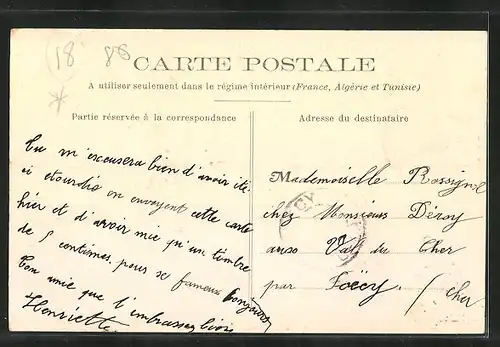 18 86
CARTE POSTALE
A utiliser seulement dans le régime intérieur (France, Algérie et Tunisie)
Partie réservée à la correspondance
Adresse du destinataire
Tu m'excusera bien d'avoir été
si etourdie en envoyent cette carte
hier et d'avoir mie qu'un timbre
de 5 centimes. pour se fameux bonjours
Ton amie que t'embrasses bien
Henriette
Mademoiselle Rossignol
chez Monsieur Deroy
aux Val du Cher
par Foëcy / Cher